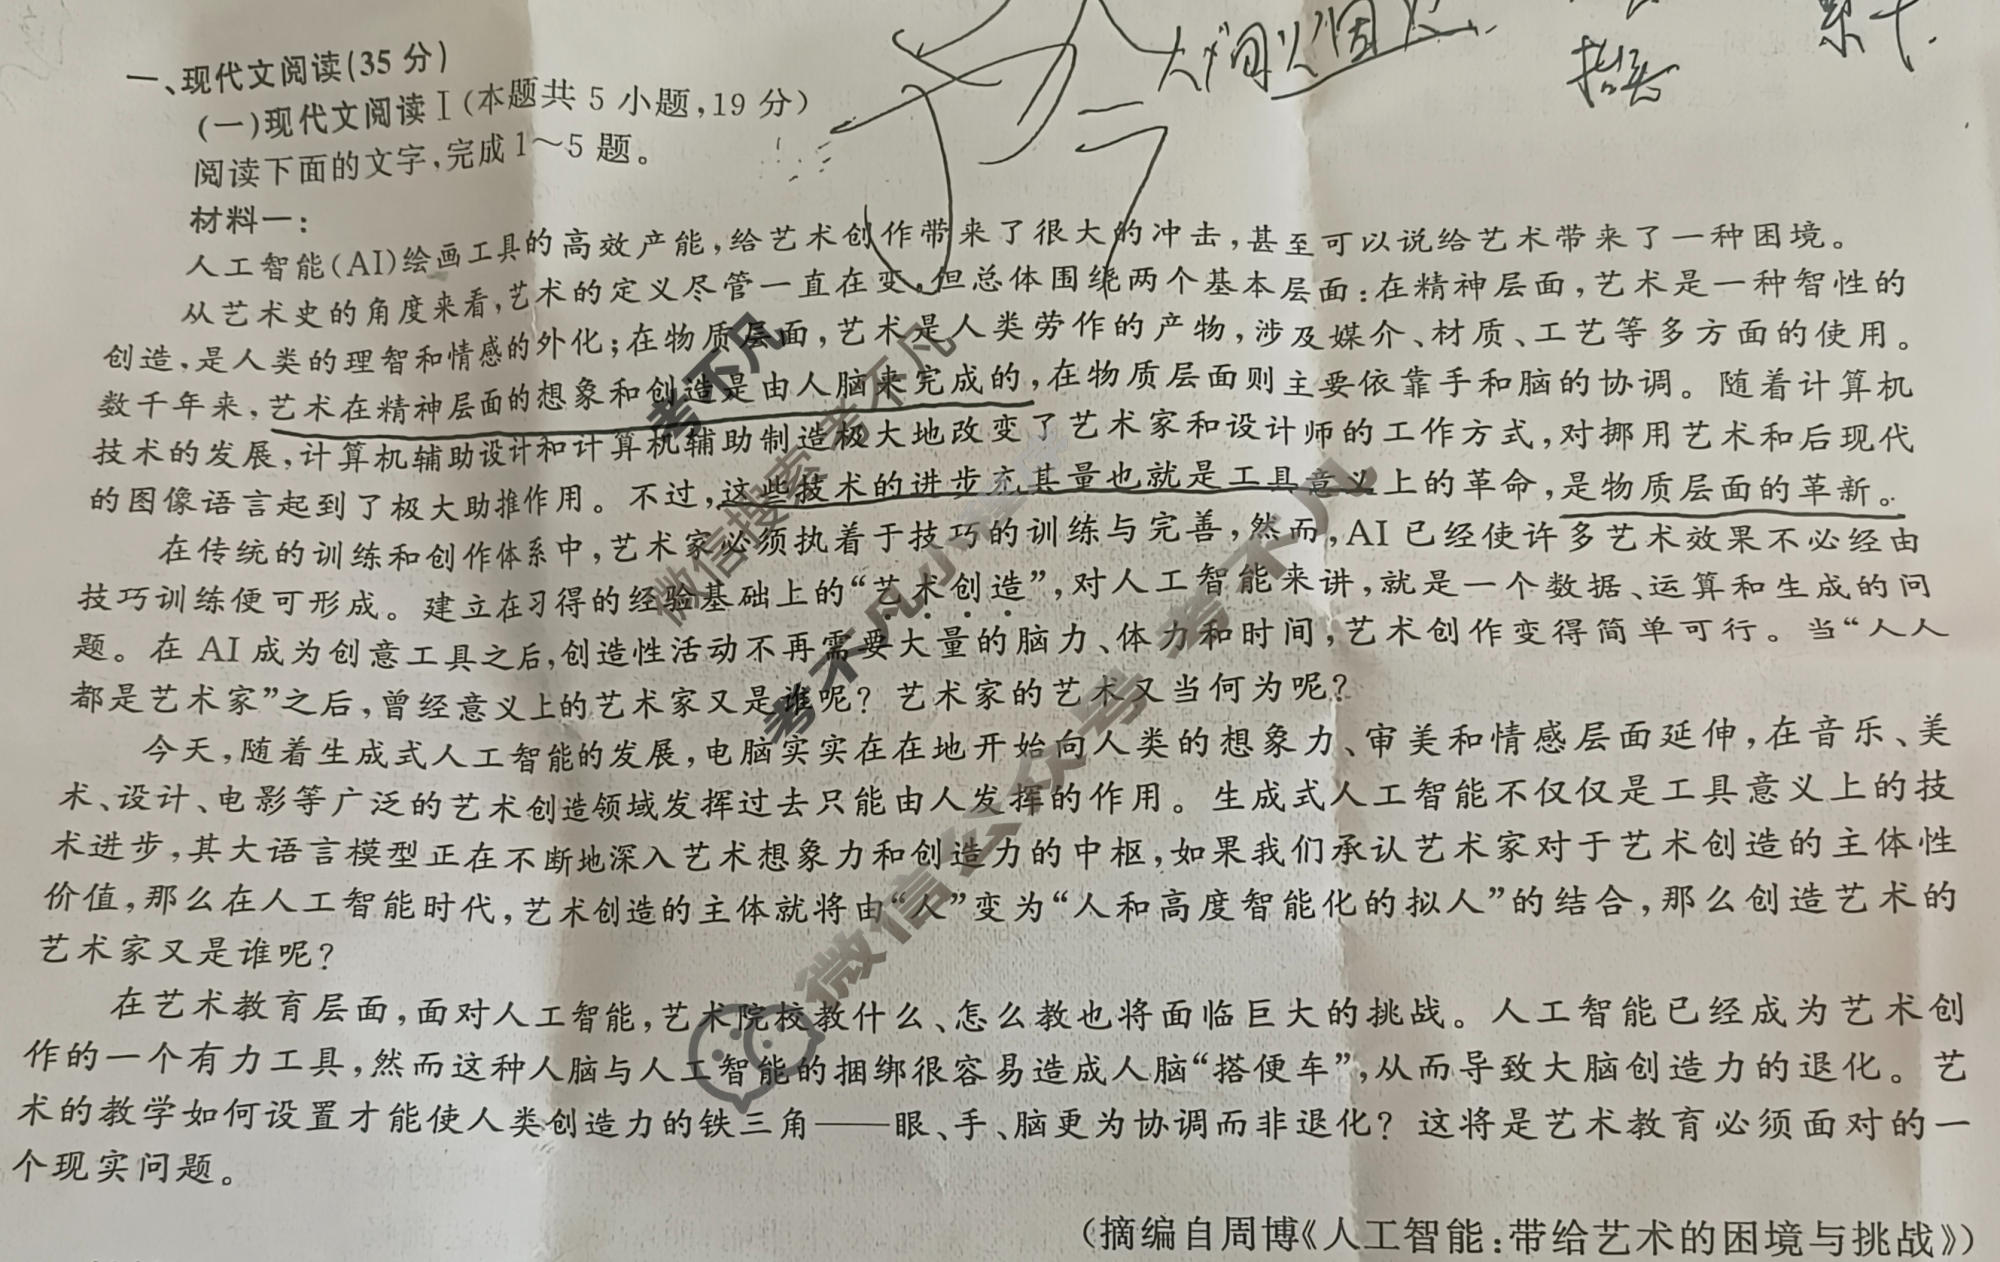 一、现代文阅读(35分)
(一)现代文阅读Ⅰ(本题共5小题,19分)
阅读下面的文字,完成1～5题。
材料一:
人工智能(AI)绘画工具的高效产能,给艺术创作带来了很大的冲击,甚至可以说给艺术带来了一种困境。
从艺术史的角度来看,艺术的定义尽管一直在变,但总体围绕两个基本层面:在精神层面,艺术是一种智性的
创造,是人类的理智和情感的外化;在物质层面,艺术是人类劳作的产物,涉及媒介、材质、工艺等多方面的使用。
数千年来,艺术在精神层面的想象和创造是由人脑来完成的,在物质层面则主要依靠手和脑的协调。随着计算机
技术的发展,计算机辅助设计和计算机辅助制造极大地改变了艺术家和设计师的工作方式,对挪用艺术和后现代
的图像语言起到了极大助推作用。不过,这些技术的进步充其量也就是工具意义上的革命,是物质层面的革新。
在传统的训练和创作体系中,艺术家必须执着于技巧的训练与完善,然而,AI已经使许多艺术效果不必经由
技巧训练便可形成。建立在习得的经验基础上的“艺术创造”,对人工智能来讲,就是一个数据、运算和生成的问
题。在AI成为创意工具之后,创造性活动不再需要大量的脑力、体力和时间,艺术创作变得简单可行。当“人人
都是艺术家”之后,曾经意义上的艺术家又是谁呢?艺术家的艺术又当何为呢?
今天,随着生成式人工智能的发展,电脑实实在在地开始向人类的想象力、审美和情感层面延伸,在音乐、美
术、设计、电影等广泛的艺术创造领域发挥过去只能由人发挥的作用。生成式人工智能不仅仅是工具意义上的技
术进步,其大语言模型正在不断地深入艺术想象力和创造力的中枢,如果我们承认艺术家对于艺术创造的主体性
价值,那么在人工智能时代,艺术创造的主体就将由“人”变为“人和高度智能化的拟人”的结合,那么创造艺术的
艺术家又是谁呢?
在艺术教育层面,面对人工智能,艺术院校教什么、怎么教也将面临巨大的挑战。人工智能已经成为艺术创
作的一个有力工具,然而这种人脑与人工智能的捆绑很容易造成人脑“搭便车”,从而导致大脑创造力的退化。艺
术的教学如何设置才能使人类创造力的铁三角——眼、手、脑更为协调而非退化?这将是艺术教育必须面对的一
个现实问题。
(摘编自周博《人工智能:带给艺术的困境与挑战》)
考不凡
微信搜索 考不凡
考不凡小程序
微信公众号 考不凡